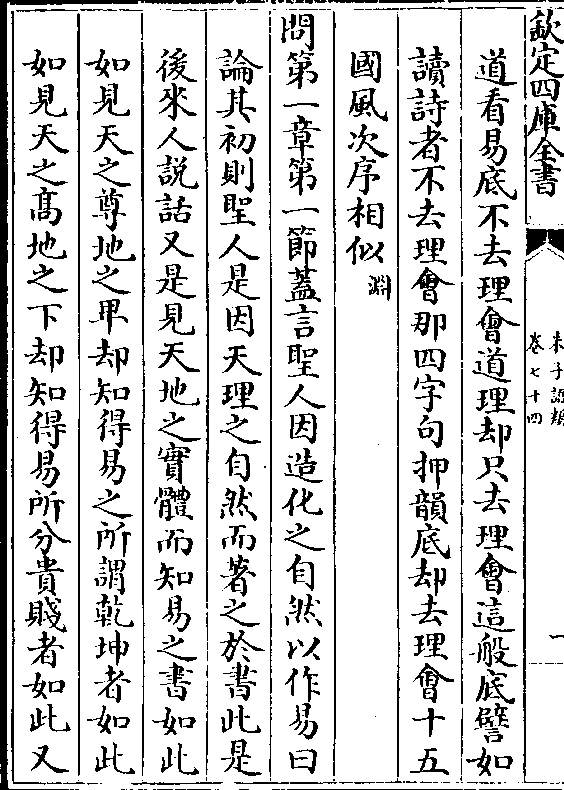 欽定四庫全書
朱子語類
卷七十四
一
道看易底不去理會道理却只去理會這般底譬如
讀詩者不去理會那四字句押韻底却去理會十五
國風次序相似 淵
問第一章第一節蓋言聖人因造化之自然以作易曰
論其初則聖人是因天理之自然而著之於書此是
後來人說話又是見天地之實體而知易之書如此
如見天之尊地之卑却知得易之所謂乾坤者如此
如見天之髙地之下却知得易所分貴賤者如此又